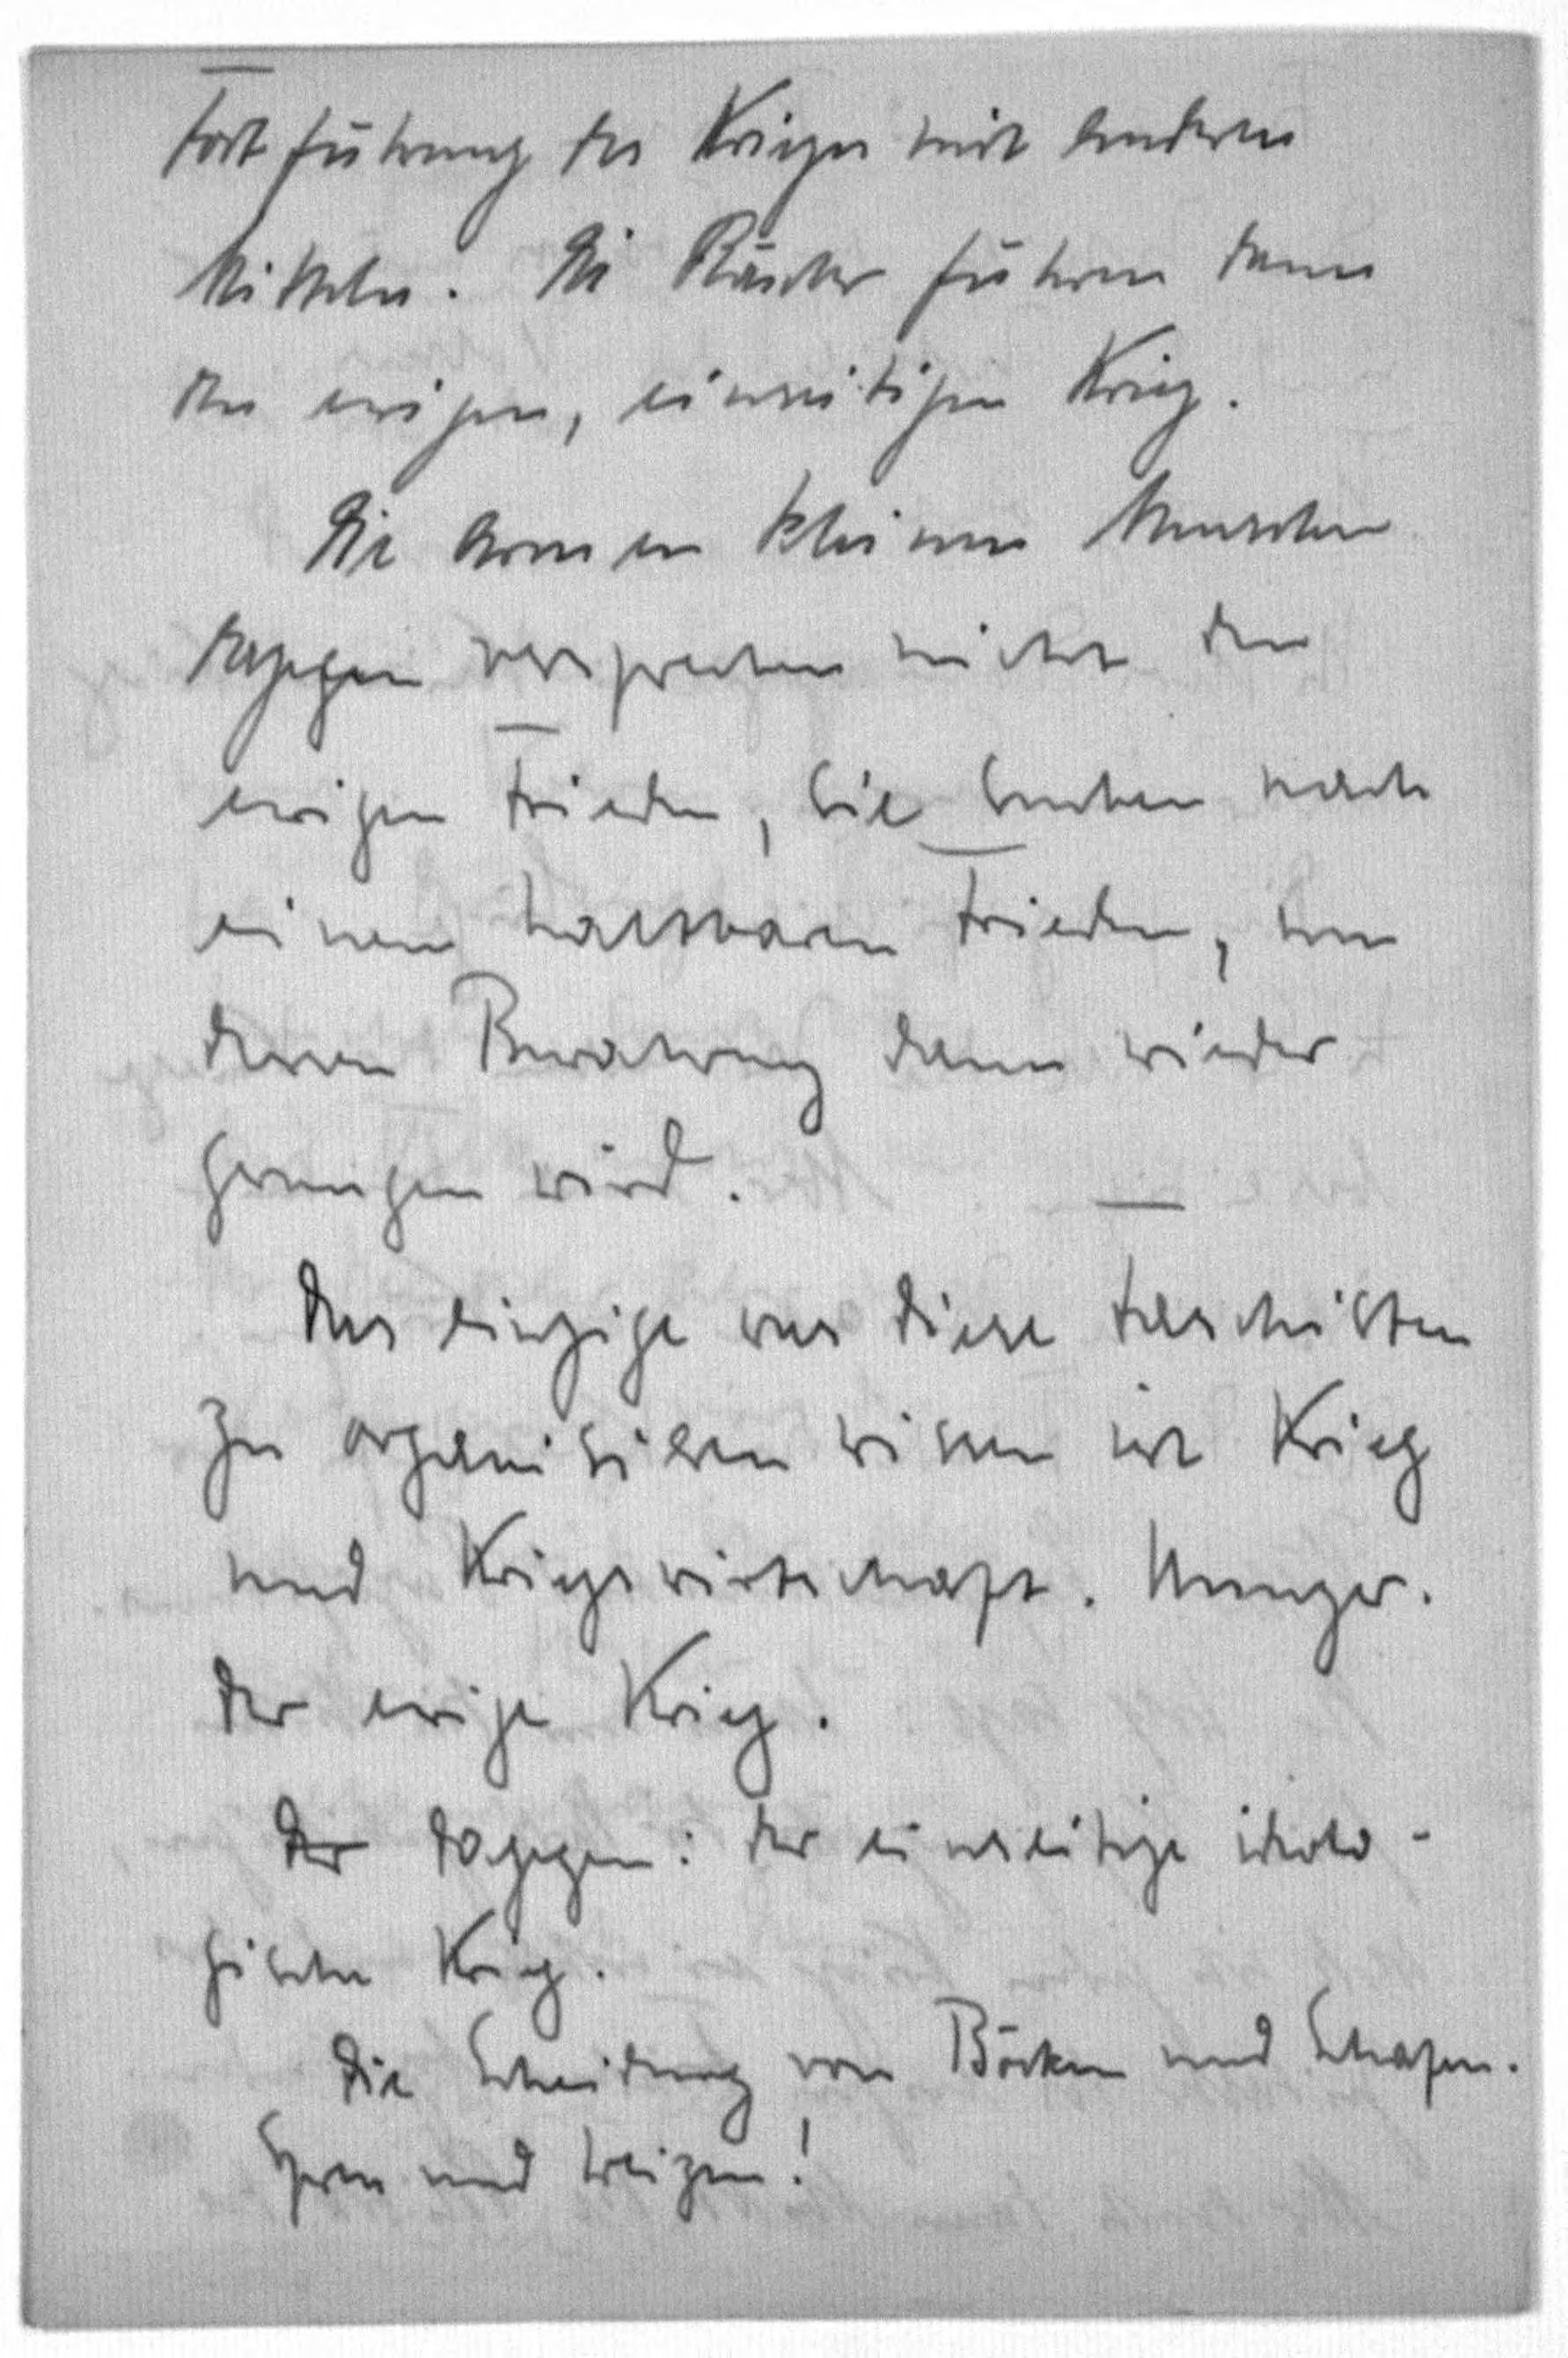 Fortführung des Krieges mit anderen
Mitteln. Die Räuber führen dann
den ewigen, einseitigen Krieg.
Die armen kleinen Menschen
dagegen versprechen nicht den
ewigen Frieden, sie suchen nach
einem haltbaren Frieden, um
deren Bewahrung dann wieder
gerungen wird.
Das einzige was diese Faschisten
zu organisieren wissen ist Krieg
und Kriegswirtschaft. Hunger.
Der ewige Krieg.
Der dagegen: der einseitige ideolo-
gische Krieg.
Die Scheidung von Böcken und Schafen.
Spreu und Weizen!